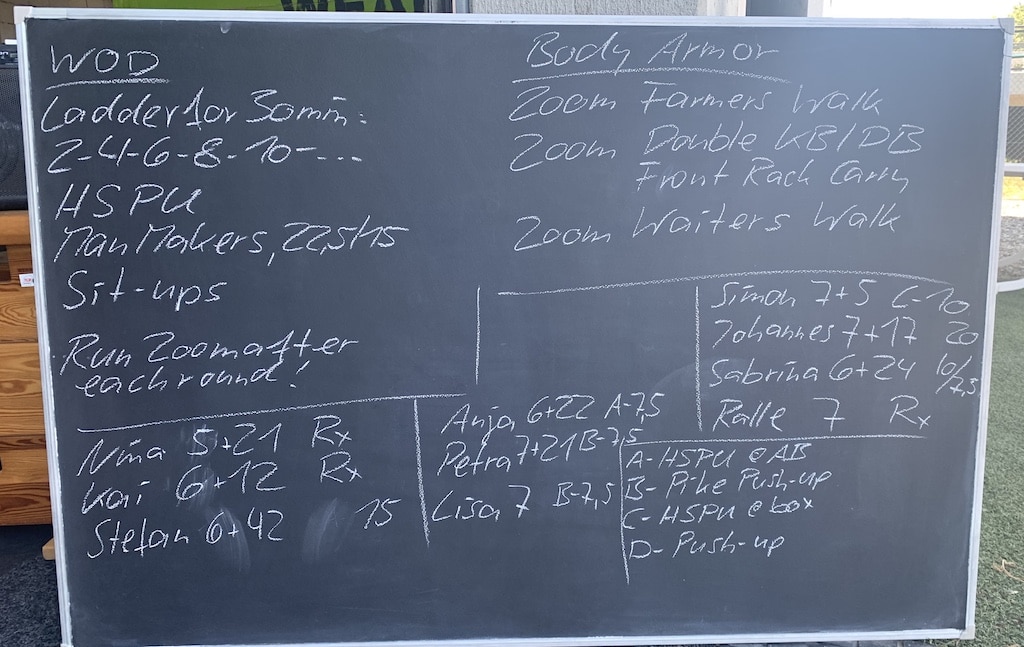 WOD
Ladder for 30min:
2-4-6-8-10-...
HSPU
Man Makers, 22,5/15
Sit-ups
Run 200m after
each round!
Body Armor
200m Farmers Walk
200m Double KB/DB
Front Rack Carry
200m Waiters Walk
Simon 7+5 C-10
Johannes 7+17 20
Sabrina 6+24 10/7,5
Ralle 7 Rx
Nina 5+21 Rx
Kai 6+12 Rx
Stefan 6+42 15
Anja 6+22 A-7,5
Petra 7+21 B-7,5
Lisa 7 B-7,5
A-HSPU @ AB
B- Pike Push-up
C-HSPU @ box
D- Push-up